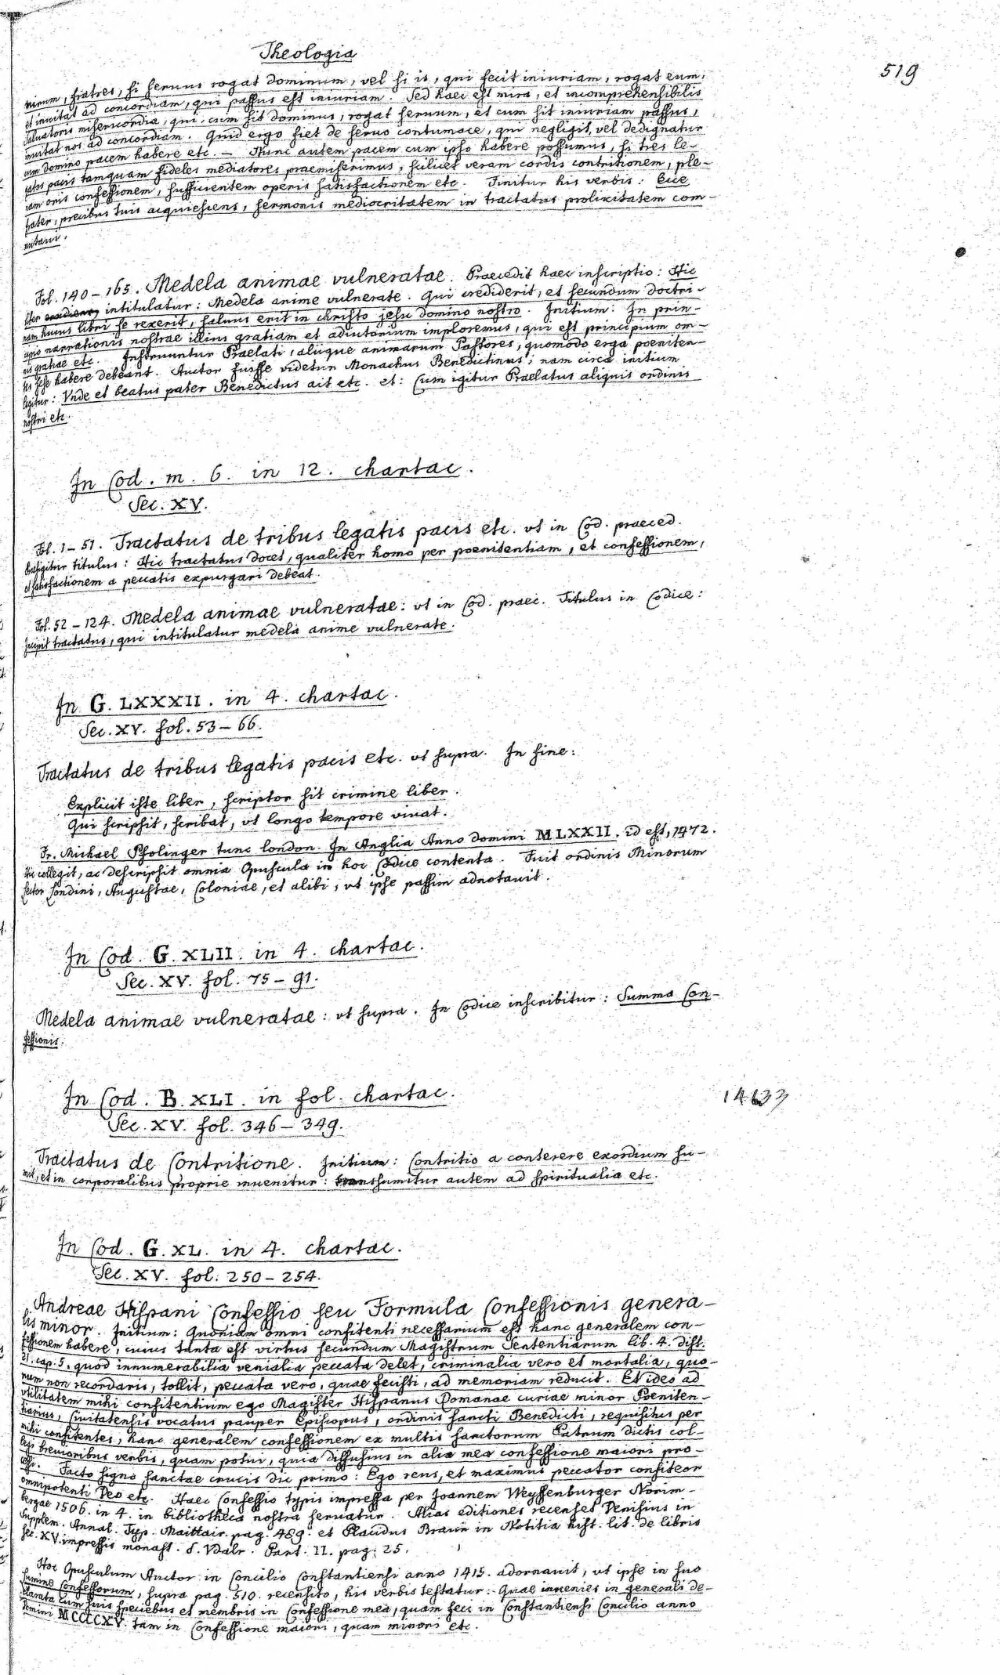 Theologia
519
mirum, fratres, si servus rogat dominum, vel si is, qui fecit iniuriam, rogat eum,
et invitat ad concordiam, qui passus est iniuriam. Sed haec est mira, et incomprehensibilis
salvatoris misericordia, qui, cum sit dominus, rogat servum, et cum sit iniuriam passus,
invitat nos ad concordiam. Quid ergo fiet de servo contumace, qui negligit, vel dedignatur
cum Domino pacem habere etc. — Nunc autem pacem cum ipso habere possumus, si tres le-
gatos pacis tamquam fideles mediatores praemiserimus, scilicet veram cordis contritionem, ple-
nam oris confessionem, sufficientem operis satisfactionem etc. Finitur his verbis: Ecce
pater, precibus tuis acquiescens, sermonis mediocritatem in tractatus prolixitatem com-
mutavi.
Fol. 140–165. Medela animae vulneratae. Praecedit haec inscriptio: Hic
liber intitulatur: Medela anime vulnerate. Qui crediderit, et secundum doctri-
nam huius libri se rexerit, salvus erit in christo jesu domino nostro. Initium: In prin-
cipio narrationis nostrae illius gratiam et adiutorium imploremus, qui est principium om-
nis gratiae etc. Instruuntur Praelati, aliique animarum Pastores, quomodo erga poeniten-
tes sese habere debeant. Auctor fuisse videtur Monachus Benedictinus; nam circa initium
legitur: Unde et beatus pater Benedictus ait etc. et: Cum igitur Praelatus aliquis ordinis
nostri etc.
In Cod. m. 6. in 12. chartac.
Sec. XV.
Fol. 1–51. Tractatus de tribus legatis pacis etc. vt in Cod. praeced.
titulus: Hic tractatus docet, qualiter homo per poenitentiam, et confessionem,
et satisfactionem a peccatis expurgari debeat.
Fol. 52–124. Medela animae vulneratae: vt in Cod. praec. Titulus in Codice:
Incipit tractatus, qui intitulatur medela anime vulnerate.
In G. LXXXII. in 4. chartac.
Sec. XV. fol. 53–66.
Tractatus de tribus legatis pacis etc. vt supra. In fine:
Explicit iste liber, scriptor sit crimine liber.
Qui scripsit, scribat, vt longo tempore vivat.
Fr. Michael Psolinger tunc london. In Anglia Anno domini MLXXII. id est, 1472.
Hic collegit, ac descripsit omnia Opuscula in hoc Codice contenta. Fuit ordinis Minorum
Lector Londini, Augustae, Coloniae, et alibi, vt ipse passim adnotavit.
In Cod. G. XLII. in 4. chartac.
Sec. XV. fol. 75–91.
Medela animae vulneratae: vt supra. In Codice inscribitur: Summa Con-
fessionis.
In Cod. B. XLI. in fol. chartac.
14633
Sec. XV. fol. 346–349.
Tractatus de Contritione. Initium: Contritio a conterere exordium su-
mit, et in corporalibus proprie invenitur: transsumitur autem ad spiritualia etc.
In Cod. G. XL. in 4. chartac.
Sec. XV. fol. 250–254.
Andreae Hispani Confessio seu Formula Confessionis genera-
lis minor. Initium: Quoniam omni confitenti necessarium est hanc generalem con-
fessionem habere, cuius tanta est virtus secundum Magistrum Sententiarum lib. 4. dist.
21. cap. 5. quod innumerabilia venialia peccata delet, criminalia vero et mortalia, quo-
rum non recordaris, tollit, peccata vero, quae fecisti, ad memoriam reducit. Et ideo ad
utilitatem mihi confitentium ego Magister Hispanus Romanae curiae minor Poeniten-
tiarius, Civitatensis vocatus pauper Episcopus, ordinis sancti Benedicti, requisitus per
mihi confitentes, hanc generalem confessionem ex multis sanctorum Patrum dictis col-
legi brevioribus verbis, quam potui, quia diffusius in alia mea confessione maiori pro-
cessi. Facto signo sanctae crucis dic primo: Ego reus, et maximus peccator confiteor
omnipotenti Deo etc. Haec Confessio typis impressa per Joannem Weyssenburger Norim-
bergae 1506. in 4. in bibliotheca nostra servatur. Alias editiones recenset Denisius in
Supplem. Annal. Typ. Maittair. pag. 489. et Placidus Braun in Notitia hist. lit. de libris
sec. XV. impressis monast. S. Vdalr. Part. II. pag. 25.
Hoc Opusculum Auctor in Concilio Constantiensi anno 1415. adornavit, vt ipse in suo
Lumine Confessorum, supra pag. 510. recensito, his verbis testatur: Quae invenies in generali de-
clarata cum suis speciebus et membris in Confessione mea, quam feci in Constantiensi Concilio anno
Domini MCCCCXV. tam in Confessione maiori, quam minori etc.